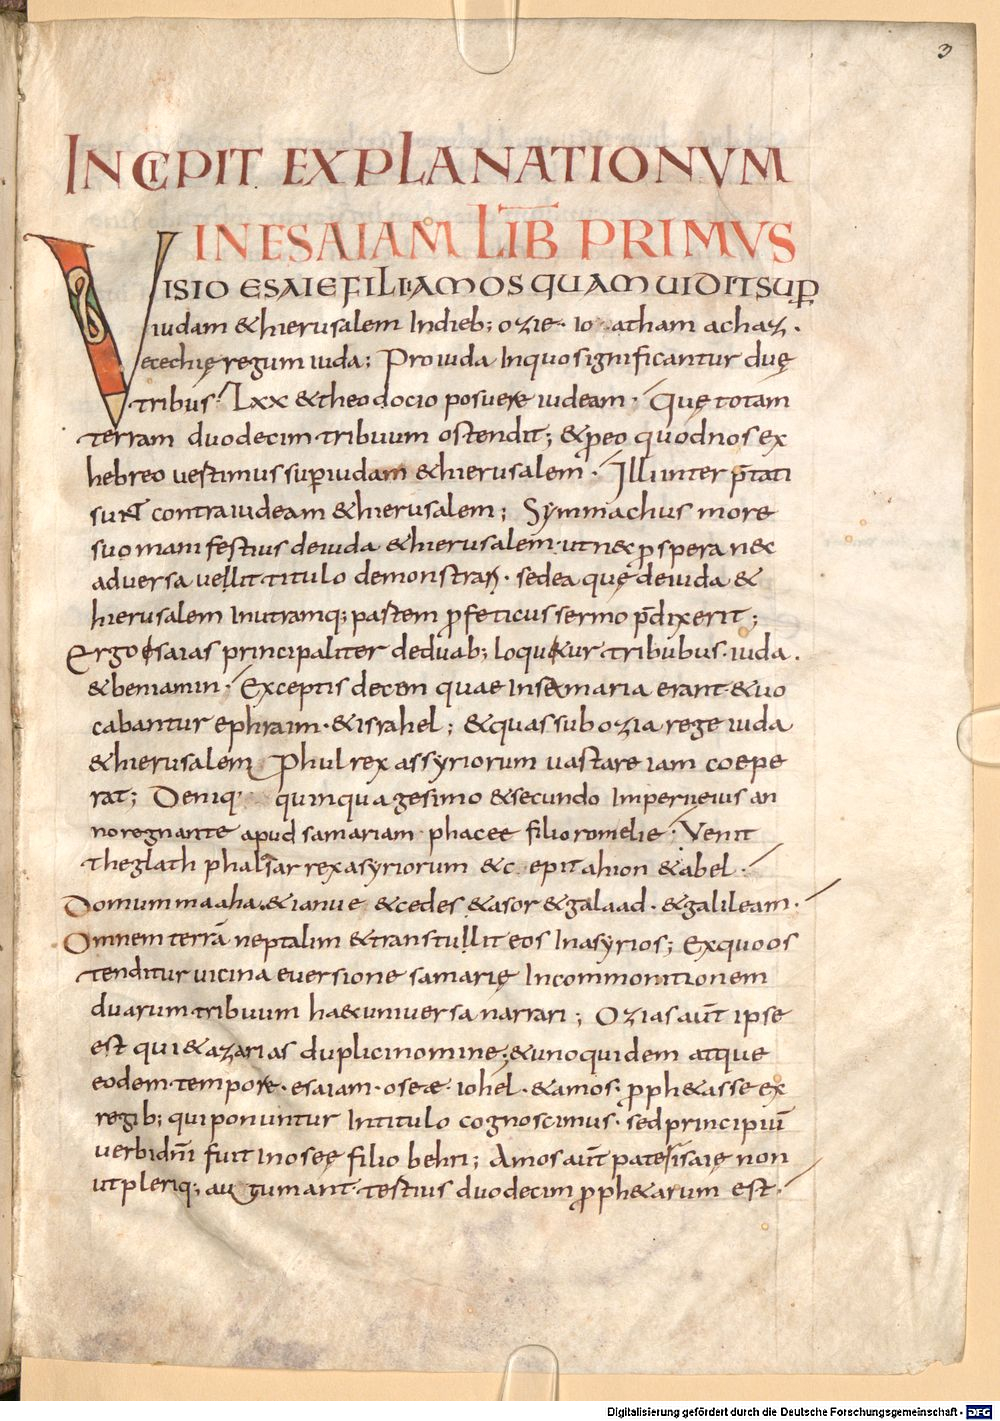 3
INCIPIT EXPLANATIONUM
IN ESAIAM LIB̅ PRIMUS
VISIO ESAIE FILII AMOS QUAM UIDIT SUꝑ
iudam &hierusalem Indieb; ozie· io atham achaz·
ecechię regum iuda; Pro iuda Inquo significantur duę
tribus· Lxx &theodocio posuere iudeam· Quę totam
terram duodecim tribuum ostendit; &ꝑeo quodnos ex
hebreo uestimus suꝑ iudam &hierusalem· Illi inter p̅tati
sunt contra iudeam &hierusalem; Symmachus more
suo manifestius deiuda &hierusalem· ut nec ꝓspera nec
aduersa uellit titulo demonstrar&· sed ea quę deiuda &
hierusalem Inutramq; partem ꝓfeticus sermo p̅dixerit;
Ergo esaias principaliter deduab; loquitur tribubus· iuda·
&beniamin· Exceptis decem quae Insamaria erant· &uo
cabantur ephraim· &israhel; &quas sub ozia rege iuda
&hierusalem Phul rex assyriorum uastare iam coepe
rat; Deniq· quinquagesimo &secundo Imperii eius an
no regnante apud samariam· phacee filio romelie· Venit
theglath phalasar rex asyriorum &c epit ahion &abel·
Domum maaha &ianue &cedes &asor &galaad· &galileam·
Omnem terrā neptalim &transtullit eos Inasyrios; Exquo os
tenditur uicina euersione samarię Incommonitionem
duarum tribuum haec uniuersa narrari; Ozias aut̅ ipse
est qui &azarias duplici nomine; &uno quidem atque
eodem tempore· esaiam· oseæ iohel· &amos· ꝓph&asse ex
regib; qui ponuntur Intitulo cognoscimus· sed principiū
uerbi dn̅i fuit Inoseę filio behri; Amos aut̅ pater isaię non
ut pleriq; autumant· testius duodecim ꝓph&arum est·
Digitalisierung gefördert durch die Deutsche Forschungsgemeinschaft - DFG